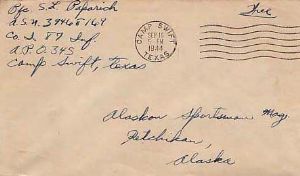 Pfc. S. L. Peparich
A.S.N. 39468164
Co. I 87 Inf.
A.P.O. 345
Camp Swift, Texas
CAMP SWIFT
SEP 11
PM
1944
TEXAS
Free
Alaskan Sportsman Mag.
Ketchikan,
Alaska